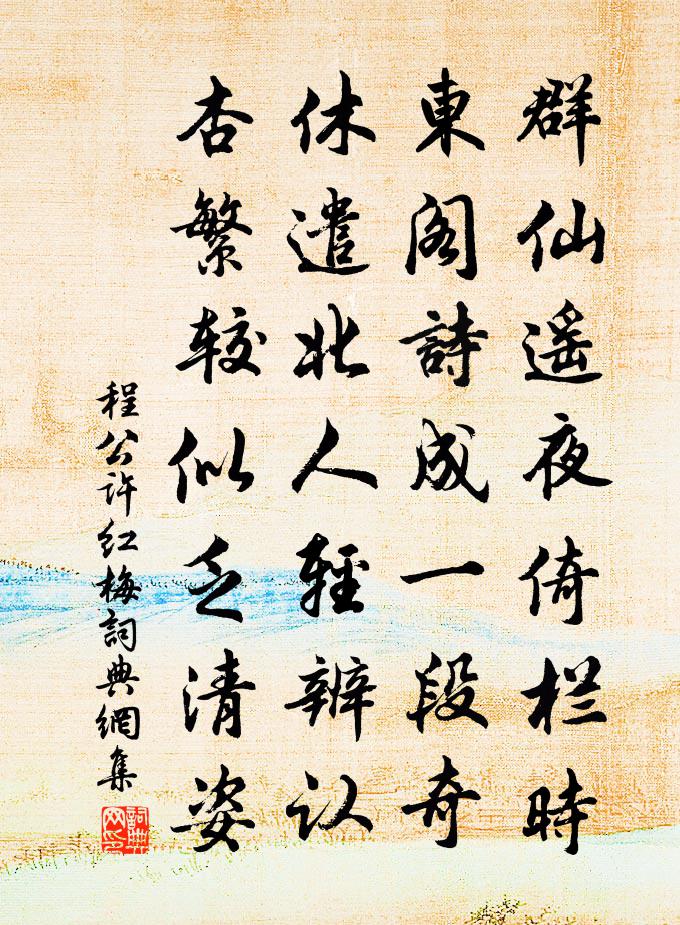 群仙遥夜倚栏時
東阁詩成一段奇
休遣北人輕辨认
杏繁较似乏清姿
程公许红梅詞典網集
詞典网印